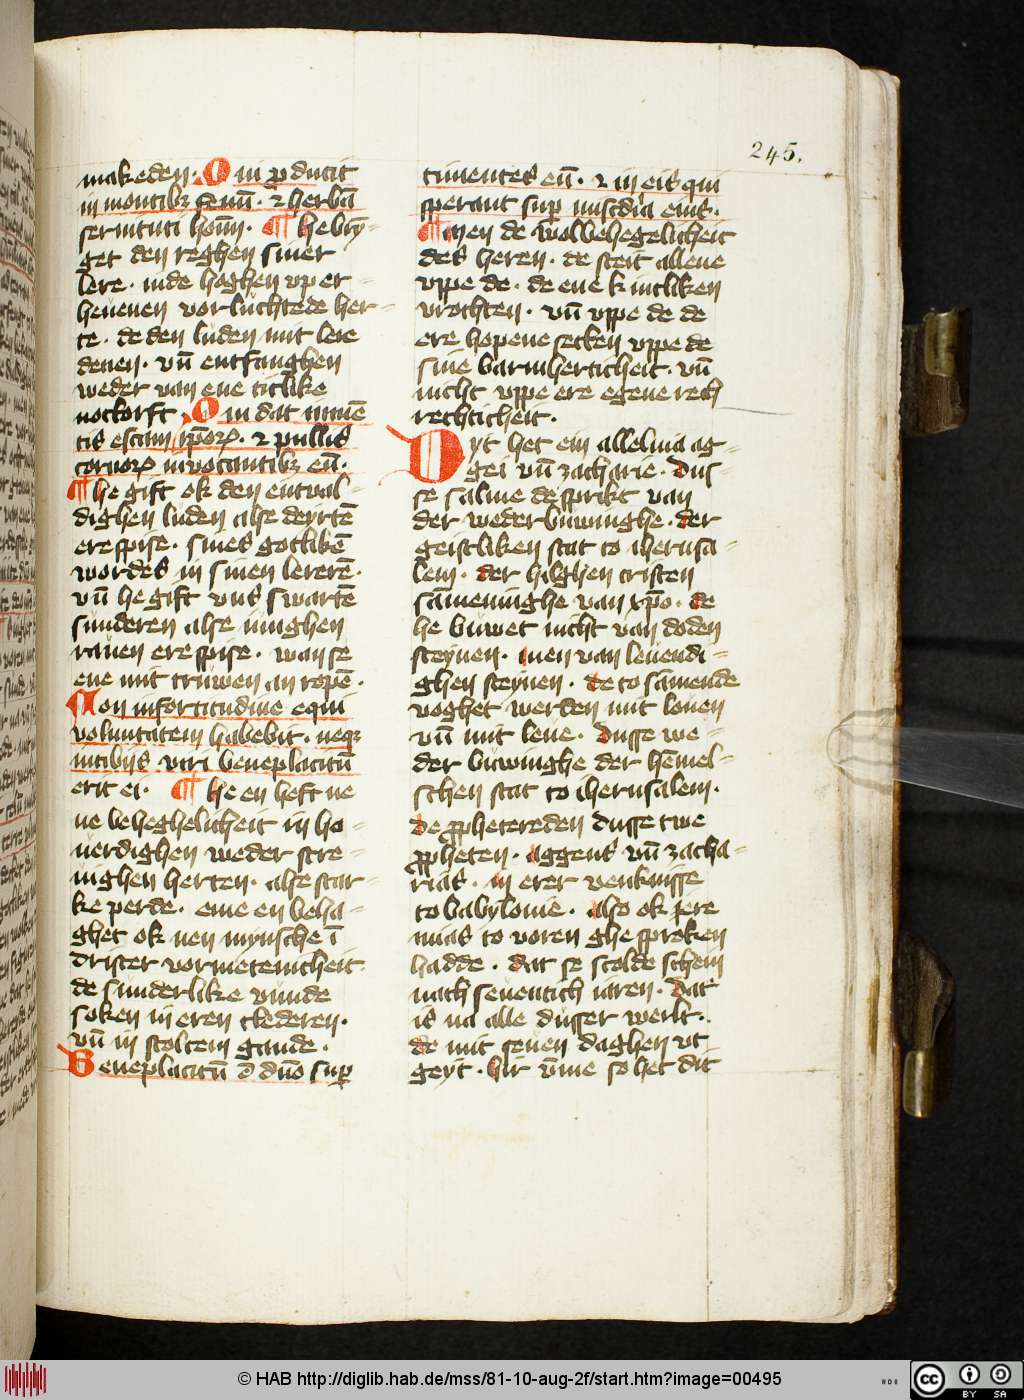 245.
makeden. Qui producit
in montibꝫ fenū. ⁊ herbā
seruituti hoīm. ¶ he bryn-
get den reghen siner
lere. in de hoghen vp er-
heuenen vorluchtede her-
te. de den luden mit lere
denen. vn̄ entfanghen
weder van ene titlike
nottorft. Qui dat iumē
tis escam ip̄oꝝ. ⁊ pullis
coruoꝝ inuocantibꝫ eū.
¶ he gift ok den entval-
dighen luden alse deyrtē
ere spise. sines gotlikē
wordes in sinen lererē.
vn̄ he gift vns swartē
sunderen alse iunghen
rauen ere spise. wan se
ene mit truwen an ropē.
Non in fortitudine equi
voluntatem habebit. neqꝫ
in tibijs viri beneplacitū
erit ei. ¶ he en heft ne
ne beheghelicheit in ho-
uerdighen weder stre-
nighen herten. alse star-
ke perde. eme en beha-
ghet ok nen mynsche ī
drister vormetenicheit.
de sunderlike vunde
soken in eren clederen.
vn̄ in stoltem gande.
Beneplacitū ē dūo sup̄
timentes eū. ⁊ in eis qui
sperant sup̄ mīscdīa eius.
¶ men de wolbehegelicheit
des heren. de steit allene
vppe de. de ene kintliken
vrochten. vn̄ vppe de de
ere hopene setten vppe de
sine barmherticheit. vn̄
nicht vppe ere egene rech
rechticheit.
Dyt het ein alleluia ag-
gei vn̄ zacharie. dus-
se salme de sprikt van
der wederbuwinghe. der
geistliken stat to iherusa-
lem. der hilghen cristen
sāmeninghe van xp̄o. de
he buwet nicht van doden
steynen. men van leuendi-
ghen steynen. de to sāmende
voghet werden mit louen
vn̄ mit leue. dusse we-
der buwinghe der hēmel-
schen stat to iherusalem.
de prophetereden dusse twe
propheten. aggeus vn̄ zacha-
rias. in erer venknisse
to babylonie. also ok iere
mias to voren ghe spreken
hadde. dat se scolde schein
nach seuentich iaren. dat
is na alle dusser werlt.
de mit seuen daghen vt
geyt. hir v̄me so het dit
© HAB http://diglib.hab.de/mss/81-10-aug-2f/start.htm?image=00495
cc BY SA